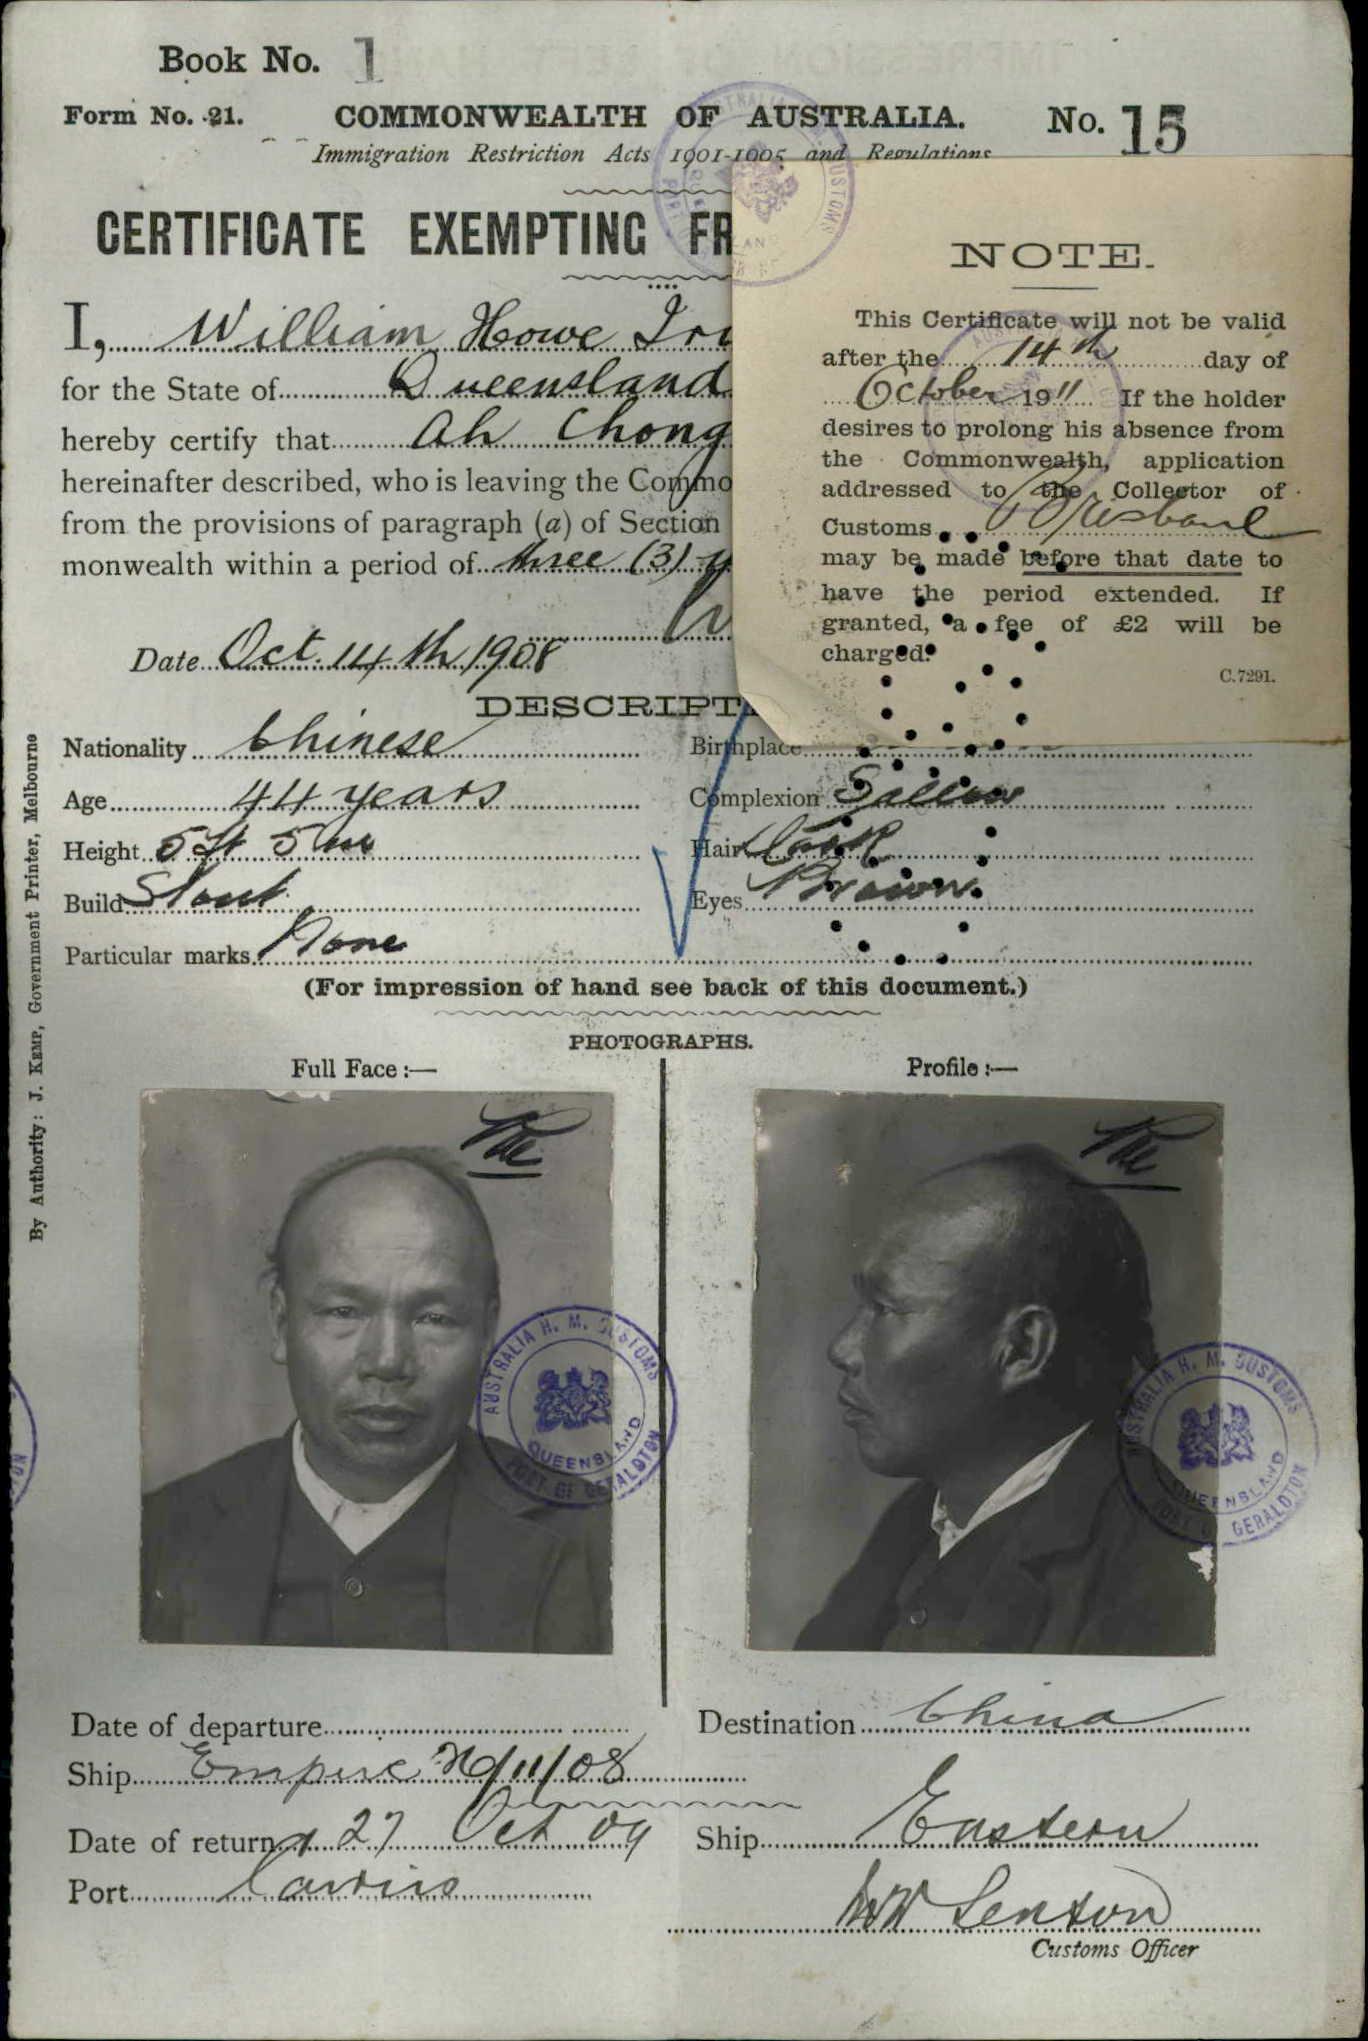 Book No. 1
Form No. 21. COMMONWEALTH OF AUSTRALIA. No. 15
Immigration Restriction Acts 1901-1905 and Regulations
CERTIFICATE EXEMPTING FR
I, William Howe Iri
for the State of Queensland
hereby certify that Ah Chong
hereinafter described, who is leaving the Commo
from the provisions of paragraph (a) of Section
monwealth within a period of three (3) y
Date Oct. 14th 1908
NOTE.
This Certificate will not be valid
after the 14th day of
October 1911 If the holder
desires to prolong his absence from
the Commonwealth, application
addressed to the Collector of
Customs Brisbane
may be made before that date to
have the period extended. If
granted, a fee of £2 will be
charged.
C.7291.
DESCRIPT
Nationality Chinese Birthplace
Age 44 years Complexion Sallow
Height 5 ft 5 ins Hair Dark
Build Stout Eyes Brown
Particular marks None
(For impression of hand see back of this document.)
PHOTOGRAPHS.
Full Face :— Profile :—
AUSTRALIA H. M. CUSTOMS
QUEENSLAND
PORT OF GERALDTON
AUSTRALIA H. M. CUSTOMS
QUEENSLAND
PORT OF GERALDTON
Date of departure Destination China
Ship Empire 26/11/08
Date of return 27 Oct 09 Ship Eastern
Port Cairns
Customs Officer
By Authority: J. KEMP, Government Printer, Melbourne